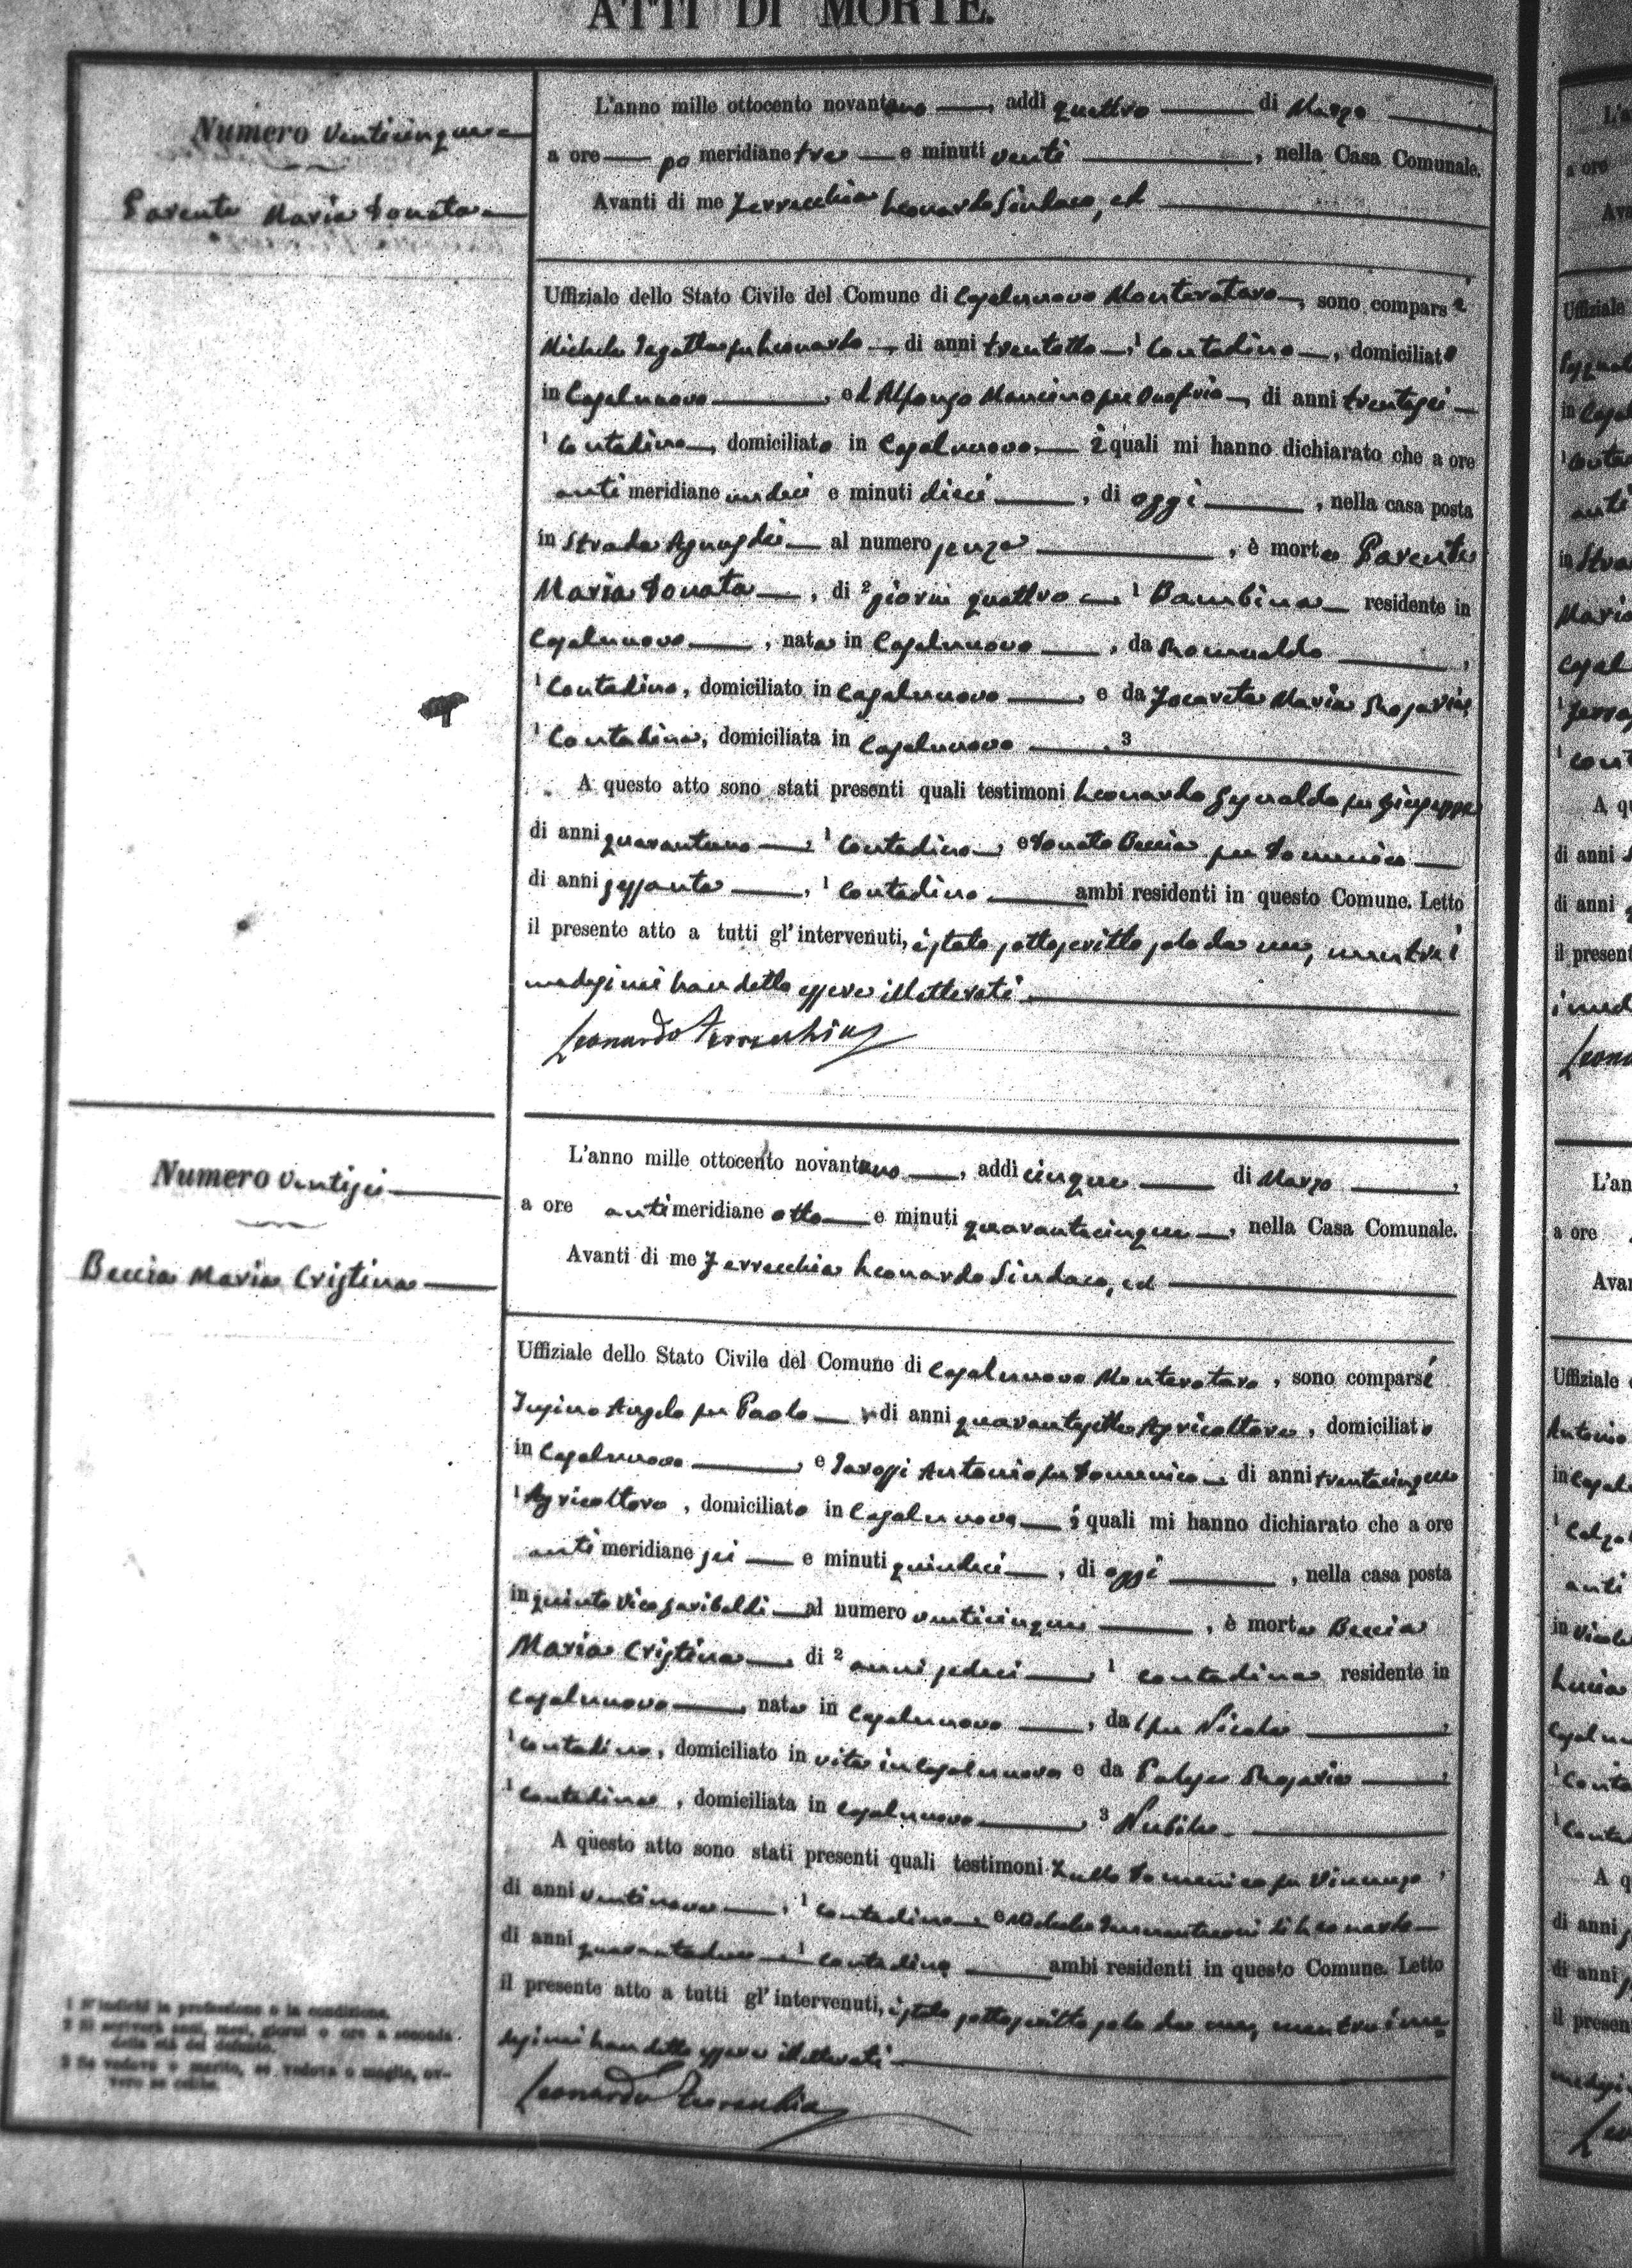 ATTI DI MORTE.
Numero venticinque
Parente Maria Donata
L'anno mille ottocento novantuno, addì quattro di Marzo
a ore po meridiane tre e minuti venti, nella Casa Comunale.
Avanti di me Ferrecchia Leonardo Sindaco, ed
Uffiziale dello Stato Civile del Comune di Casalnuovo Monterotaro, sono comparsi
Michele fu Leonardo, di anni trentotto, 1 Contadino, domiciliato
in Casalnuovo, ed Alfonso Mancino fu Onofrio, di anni trentasei
1 Contadino, domiciliato in Casalnuovo, i quali mi hanno dichiarato che a ore
anti meridiane undici e minuti dieci, di oggi, nella casa posta
in Strada al numero senza, è morta Parente
Maria Donata, di 2 giorni quattro 1 Bambina residente in
Casalnuovo, nata in Casalnuovo, da Romualdo,
1 Contadino, domiciliato in Casalnuovo, e da Maria
1 Contadina, domiciliata in Casalnuovo. 3
A questo atto sono stati presenti quali testimoni Leonardo fu Giuseppe
di anni quarantuno, 1 Contadino, e Donato Beccia fu Domenico
di anni sessanta, 1 Contadino ambi residenti in questo Comune. Letto
il presente atto a tutti gl'intervenuti, è stato sottoscritto solo da me, mentre i
medesimi han detto essere illetterati
Leonardo Ferrecchia
Numero ventisei
Beccia Maria Cristina
L'anno mille ottocento novantuno, addì cinque di Marzo,
a ore antimeridiane otto e minuti quarantacinque, nella Casa Comunale.
Avanti di me Ferrecchia Leonardo Sindaco, ed
Uffiziale dello Stato Civile del Comune di Casalnuovo Monterotaro, sono comparsi
Angelo fu Paolo di anni quarantasette Agricoltore, domiciliato
in Casalnuovo, e Antonio fu Domenico, di anni trentacinque
1 Agricoltore, domiciliato in Casalnuovo, i quali mi hanno dichiarato che a ore
anti meridiane sei e minuti quindici, di oggi, nella casa posta
in quinto Vico Garibaldi al numero venticinque, è morta Beccia
Maria Cristina, di 2 anni sedici, 1 contadina residente in
Casalnuovo, nata in Casalnuovo, da fu Nicola,
1 contadino, domiciliato in vita in Casalnuovo e da Rosaria,
1 contadina, domiciliata in Casalnuovo, 3 Nubile.
A questo atto sono stati presenti quali testimoni Zullo Domenico fu Vincenzo,
di anni ventinove, 1 contadino e Michele di Leonardo
di anni quarantadue 1 contadino ambi residenti in questo Comune. Letto
il presente atto a tutti gl'intervenuti, è stato sottoscritto solo da me, mentre i me-
desimi han detto essere illetterati
Leonardo Ferrecchia
1 S'indichi la professione o la condizione.
2 Si scriverà anni, mesi, giorni o ore a seconda
della età del defunto.
3 Se vedovo o marito, se vedova o moglie, ov-
vero se celibe.